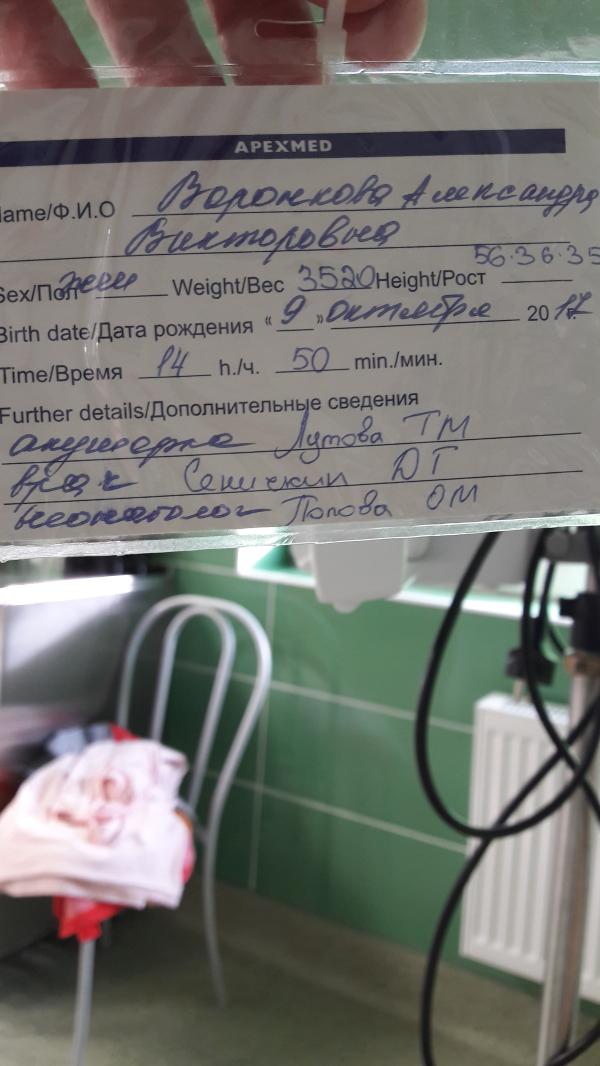 APEXMED
Name/Ф.И.О Воронкова Александра
Викторовна
56·36·35
Sex/Пол жен Weight/Вес 3520 Height/Рост
Birth date/Дата рождения « 9 » октября 2017
Time/Время 14 h./ч. 50 min./мин.
Further details/Дополнительные сведения
акушерка Лутова ТМ
врач Сеничкин ДГ
неонатолог Попова ОМ